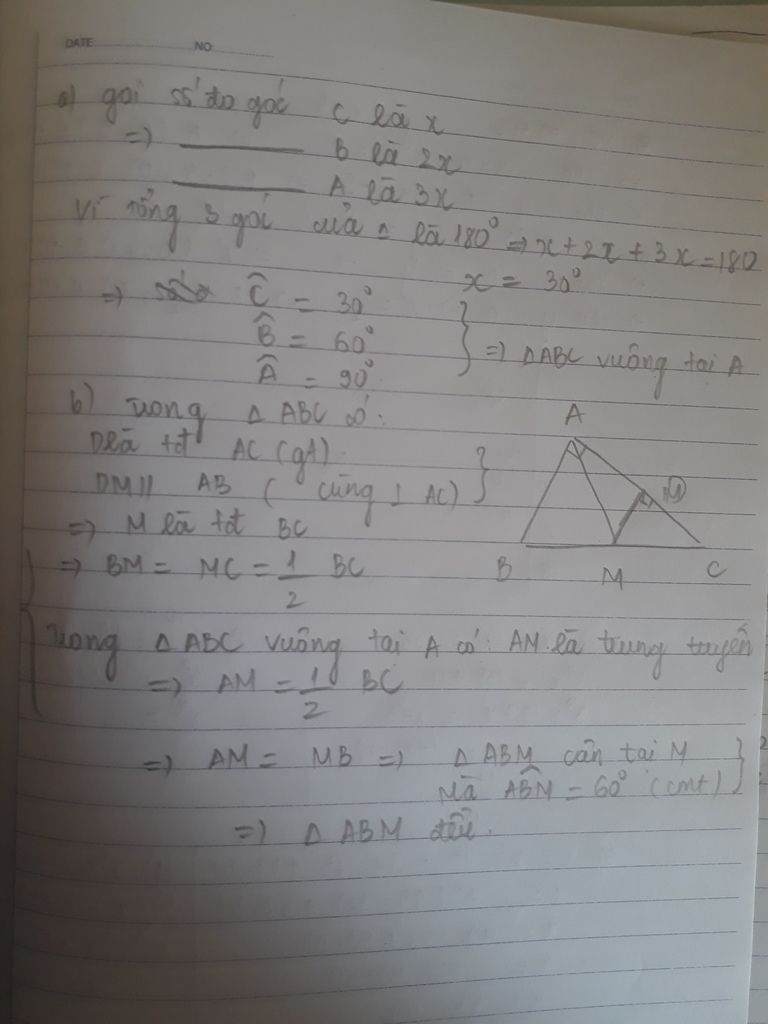 DATE NO
a) gọi số đo góc C là x
=> ———— B là 2x
———— A là 3x
Vì tổng 3 góc của Δ là 180° => x + 2x + 3x = 180
x = 30°
=> Ĉ = 30°
B̂ = 60°
Â = 90°
} => ΔABC vuông tại A
b) Trong Δ ABC có:
D là tđ AC (gt)
DM // AB ( cùng ⊥ AC) }
=> M là tđ BC
=> BM = MC = 1/2 BC
Trong Δ ABC vuông tại A có: AM là trung tuyến
=> AM = 1/2 BC
=> AM = MB => Δ ABM cân tại M
Mà ABM = 60° (cmt) }
=> Δ ABM đều.
A
B M C